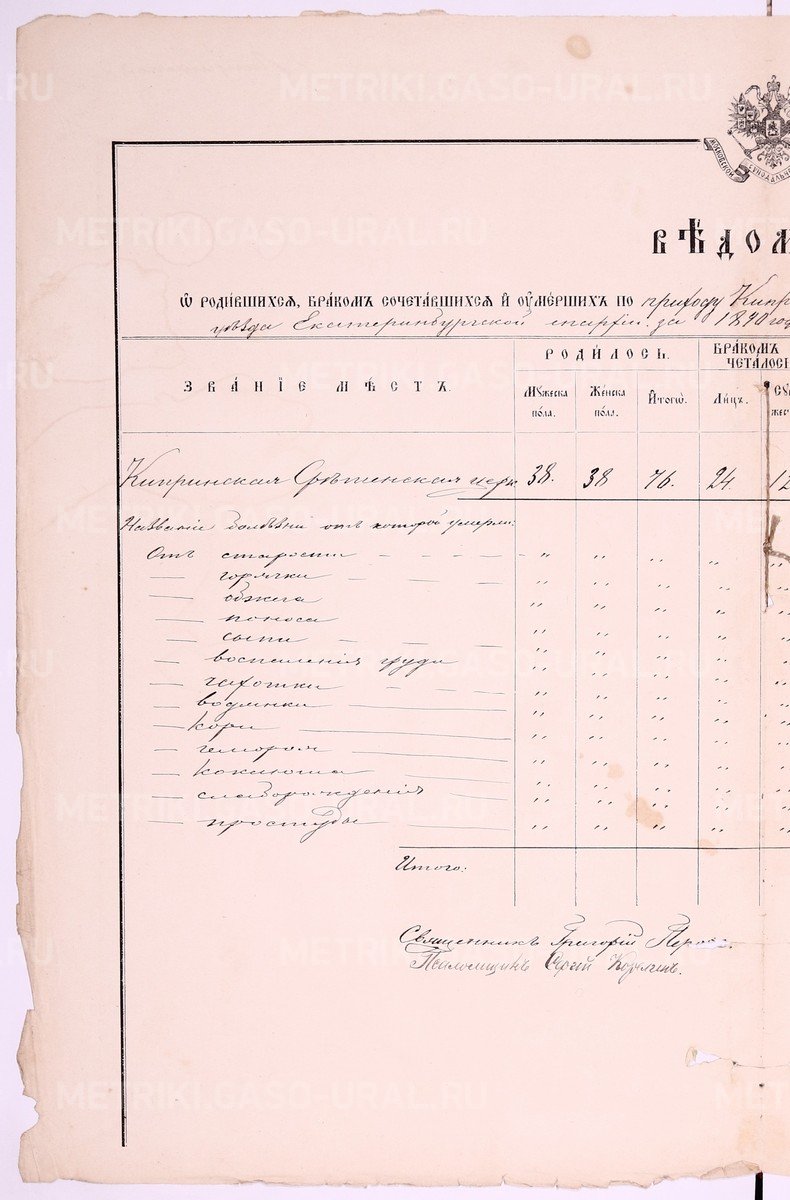 METRIKI.GASO-URAL.RU
МОСКОВСКОЙ СѴНОДАЛЬН
ВѢДОМ
Ѡ РОДИ́ВШИХСѦ, БРА́КОМЪ СОЧЕТА́ВШИХСѦ И҆ ОУ҆МЕ́РШИХЪ ПО приходу Кипр
уѣзда Екатеринбургской епархіи, за 1890 год
ЗВА́НІЕ МѢ́СТЪ. РОДИ́ЛОСЬ. БРА́КОМЪ
ЧЕТА́ЛОСЬ
Мꙋ́жеска по́ла. Же́нска по́ла. И҆тогѡ̀. Ли́цъ. Сꙋ жест
Кипринская Срѣтенская церк 38. 38 76. 24. 12
Названіе болѣзни отъ которой умерли:
Отъ старости - - - - - „ „ „ „ „
— горячки — — — „ „ „ „
— обжога „ „ „ „
— поноса
— сыпи — — — „ „ „ „
— воспаленія груди „ „ „ „
— чахотки — — — „ „ „ „
— водянки „ „ „ „
— кори „ „ „ „
— геморроя „ „ „ „
— коклюша „ „ „ „
— слаборожденія „ „ „ „
— простуды „ „ „ „
Итого:
Священникъ Григорій
Псаломщикъ Сергій